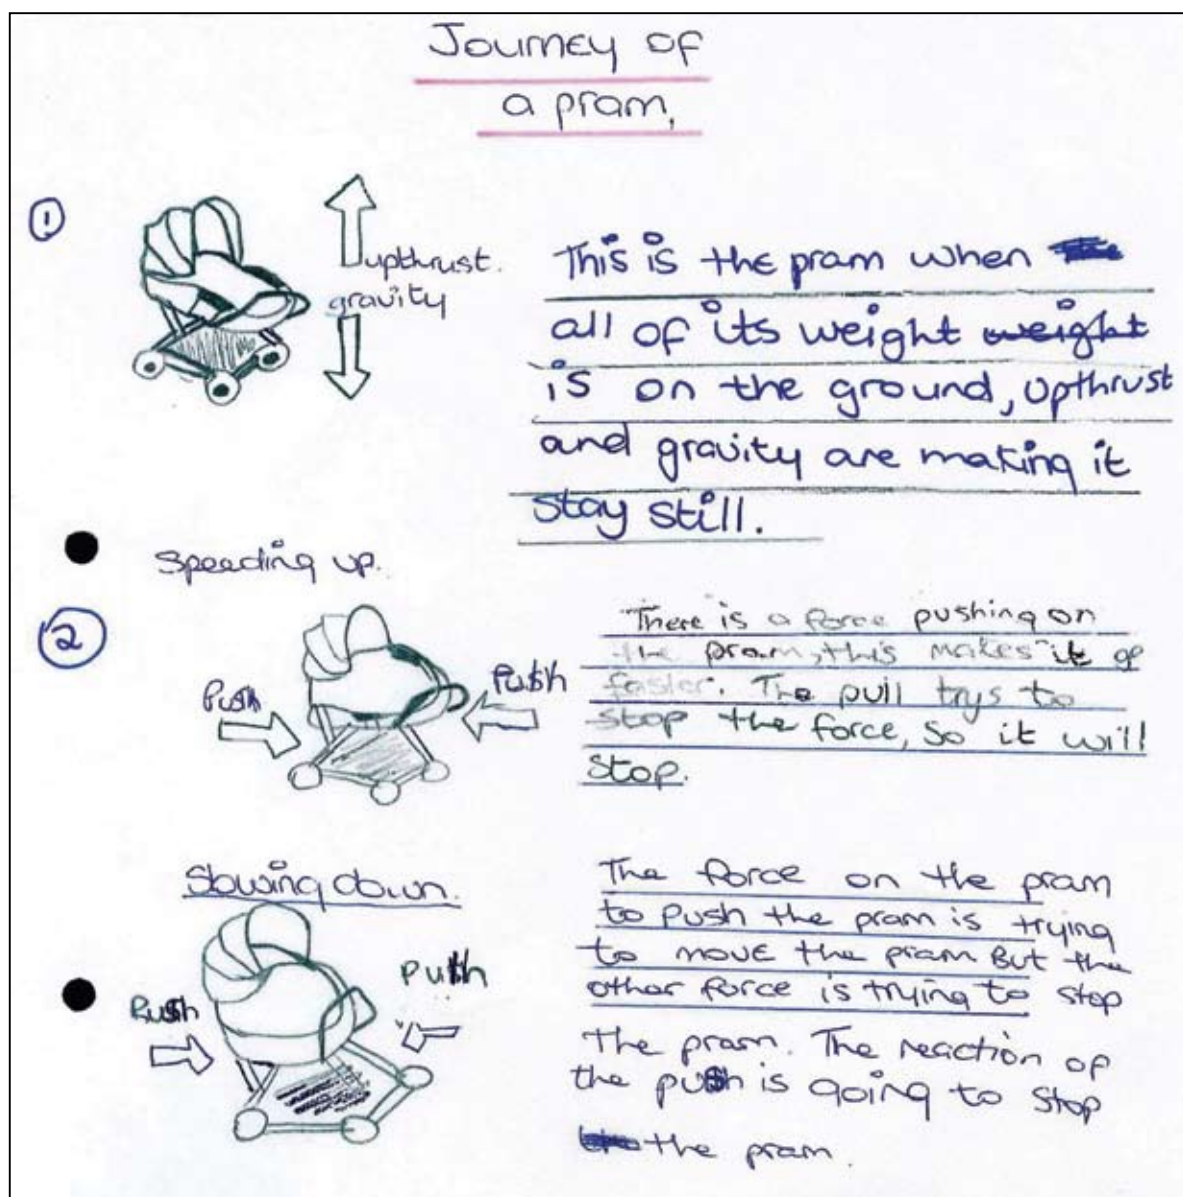 Journey of
a pram,
1
upthrust.
gravity
This is the pram when
all of its weight weight
is on the ground, upthrust
and gravity are making it
stay still.
Speeding up.
2
Push
Push
There is a force pushing on
the pram, this makes it go
faster. The pull trys to
stop the force, so it will
stop.
Slowing down.
Push
Push
The force on the pram
to push the pram is trying
to move the pram But the
other force is trying to stop
the pram. The reaction of
the push is going to stop
the pram.